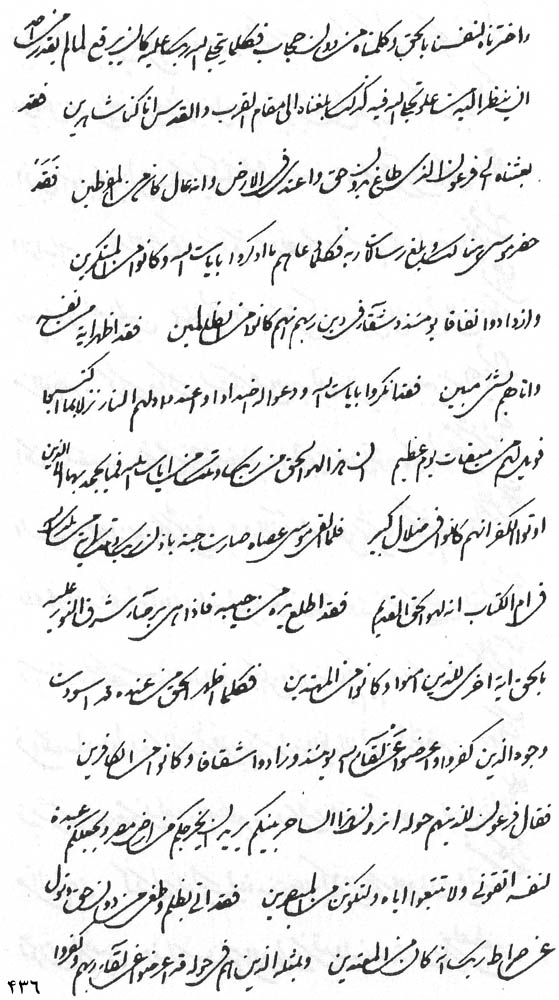 واخترناه لنفسنا بالحق وكلمناه من دون حجاب فكلما تجلى الله ربك عليه كان يرقع لما لم يقدر من احد
ان ينظر اليه من علو تجلى الله فيه كذلك بلغناه الى مقام القرب والقدس انا كنا شاهدين فقد
بعثناه الى فرعون الذى طاغ بدون حق واعتدى فى الارض وانه عال كان من المفرطين فقد
حضر موسى هنالك وبلغ رسالات ربه فكلما دعاهم ما ادركوا بايات الله وكانوا من المنكرين
وازدادوا نفاقا يومئذ وشقاق فى دين ربهم انهم كانوا من الظالمين فقد اظهر اية من نفسه
واتاهم بشئ مبين فقد انكروا بايات الله ودعوا له اضدادا واعتدوا ولهم النار نزلا بما اكتسبوا
فويل لهم من ميقات يوم عظيم ان هذا لهو الحق من ربك وتلك من ايات الله فما يجحد بها الا الذين
اوتوا الكفر انهم كانوا فى ضلال كبير فلما القى موسى عصاه صارت حية باذن ربك وتلك اية من لدى الله
فى ام الكتاب انه لهو الحق القديم فقد اطلع يده من جيبه فاذا هى بيضآء شرق النور عليه
بالحق اية اخرى للذين امنوا وكانوا من المهتدين فكلما اظهر الحق من عنده قد اسودت
وجوه الذين كفروا واعرضوا عن لقآء الله يومئذ وزادوا شقاقا وكانوا من الكافرين
فقال فرعون للذينهم حوله ان هذا الساحر بينكم يريد ان يخرجكم من ارض مصر ويجعلكم عبدة
لنفسه اتقونى ولا تتبعوا اياه ولتكونن من المبصرين فقد اتى بظلم وطغى من دون حق ونزل
عن صراط ربك انه كان من المعتدين وبمثله الذين هم فى حوله قد اعرضوا عن لقآء ربهم وكفروا
٤٣٦